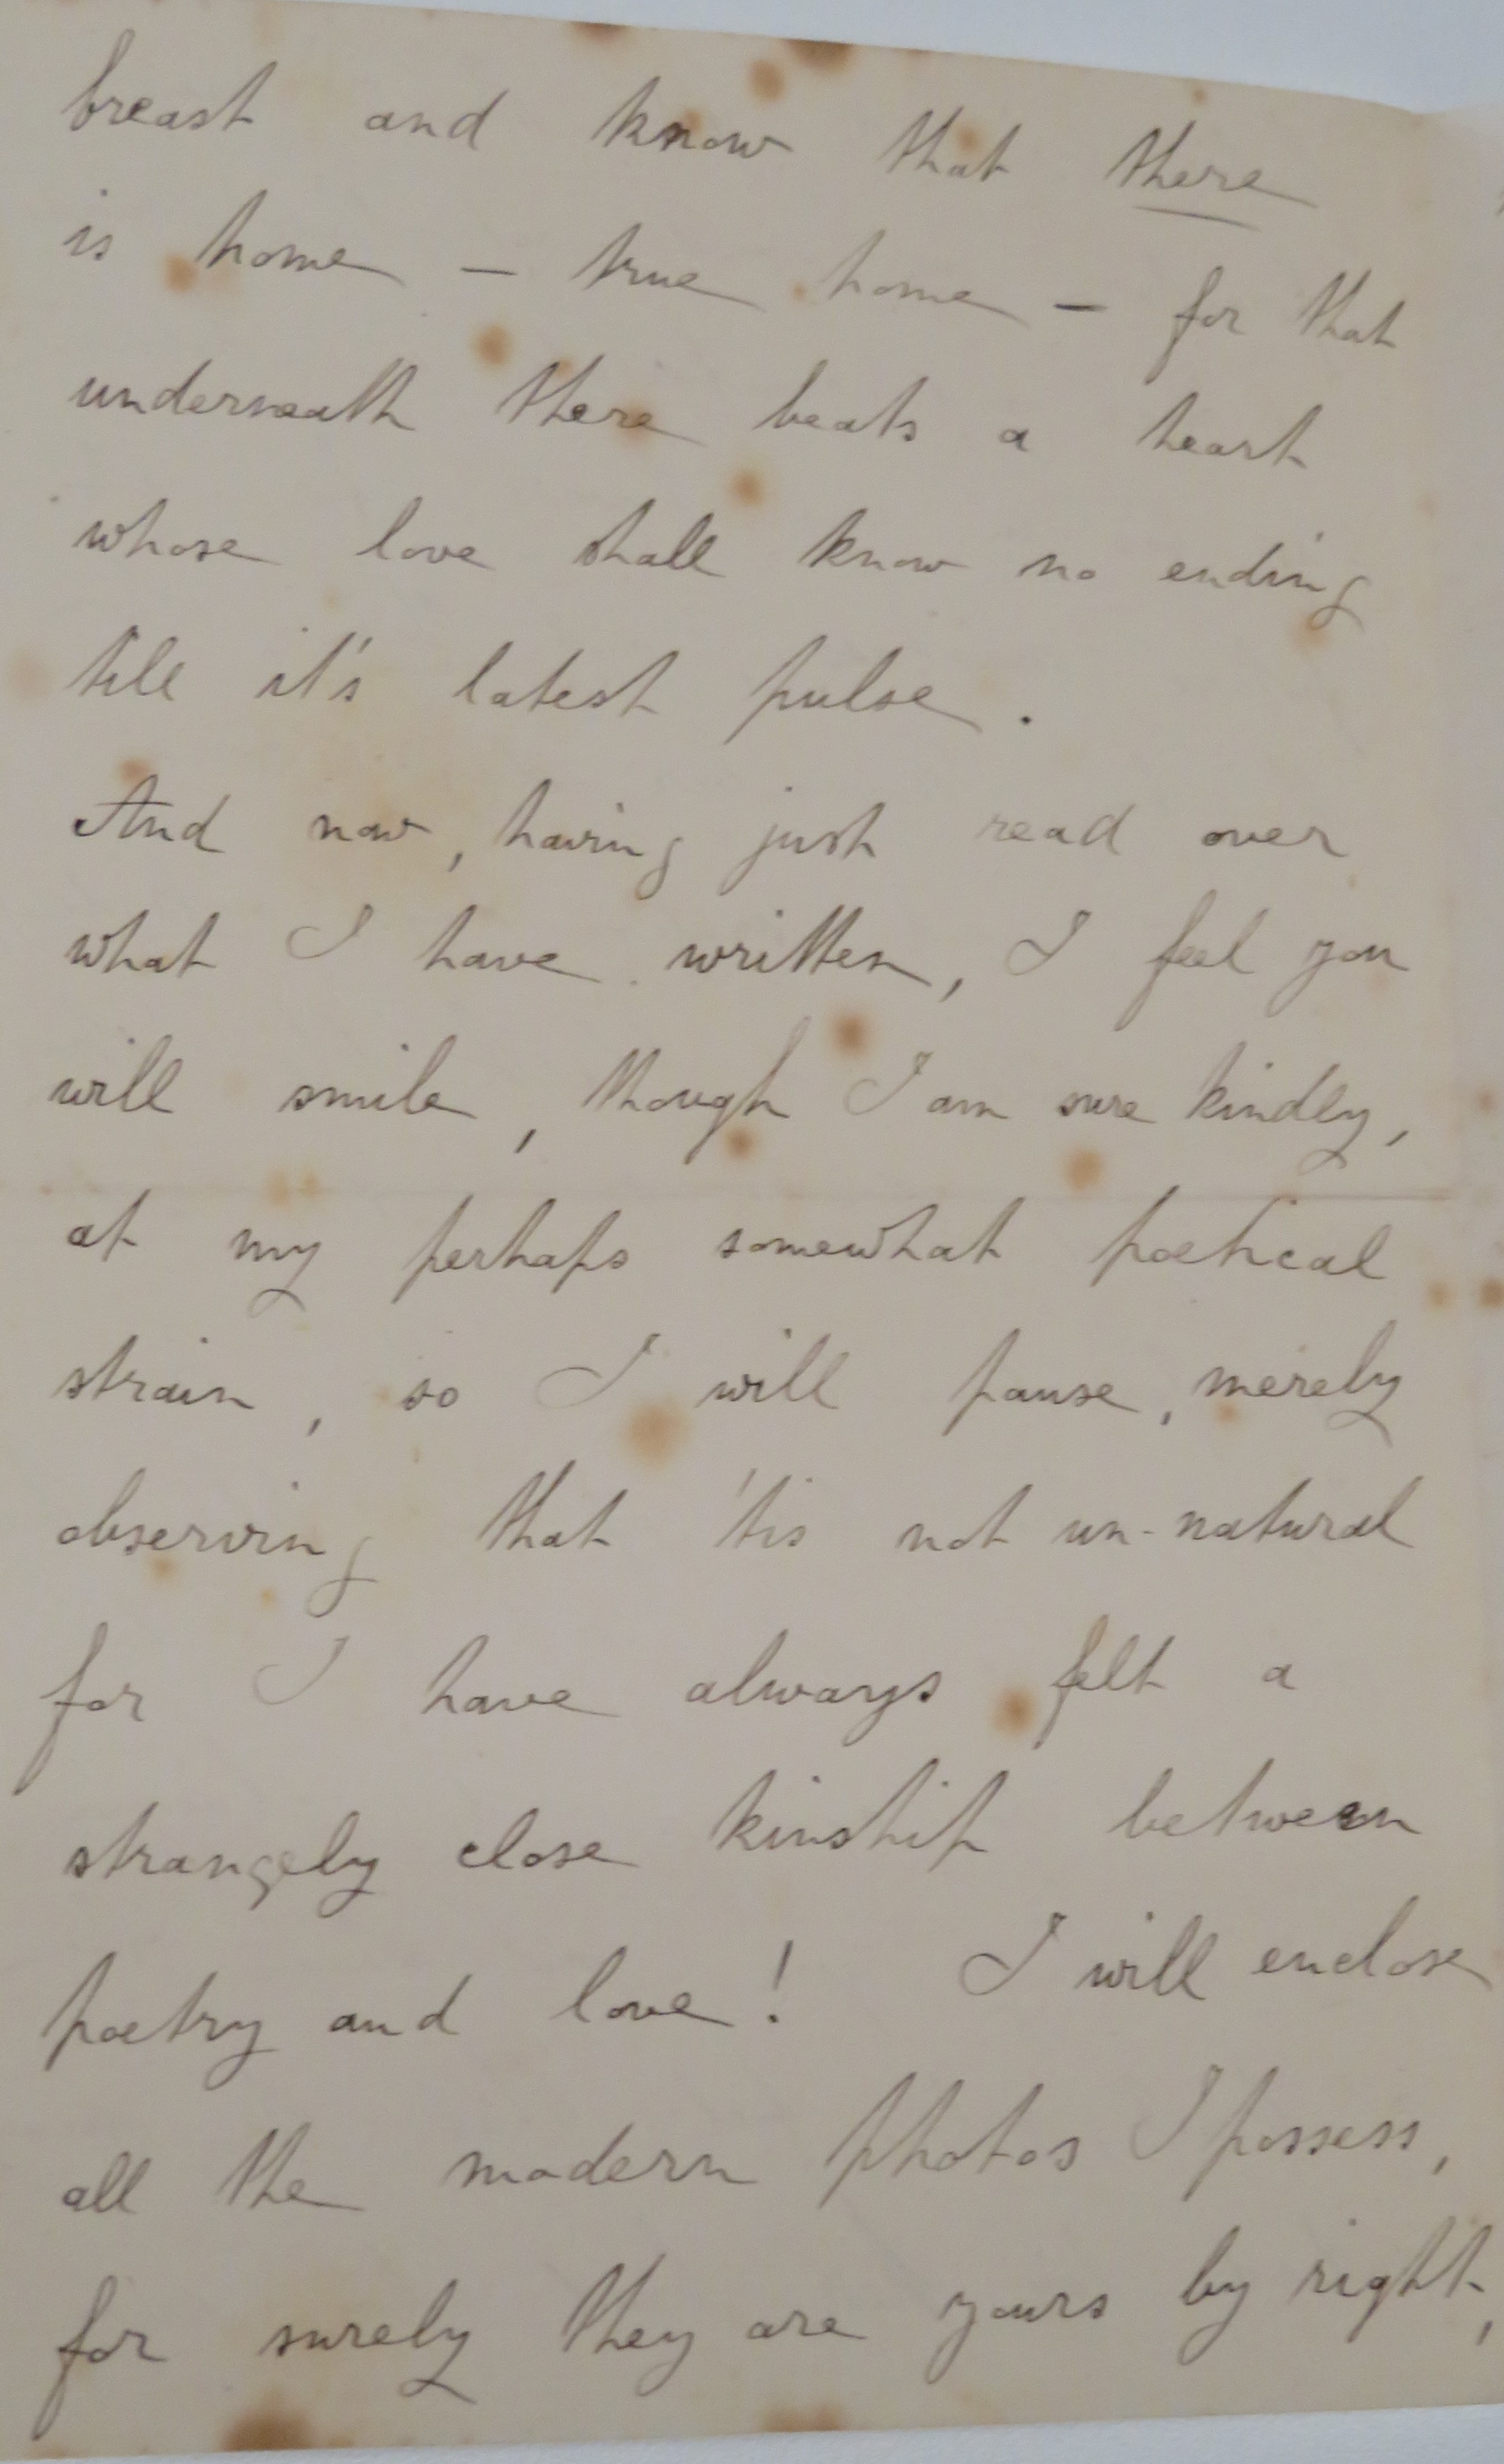 breast and know that there
is home – true home – for that
underneath there beats a heart
whose love shall know no ending
till it's latest pulse.
And now, having just read over
what I have written, I feel you
will smile, though I am sure kindly,
at my perhaps somewhat poetical
strain, so I will pause, merely
observing that 'tis not un-natural
for I have always felt a
strangely close kinship between
poetry and love! I will enclose
all the modern photos I possess,
for surely they are yours by right,